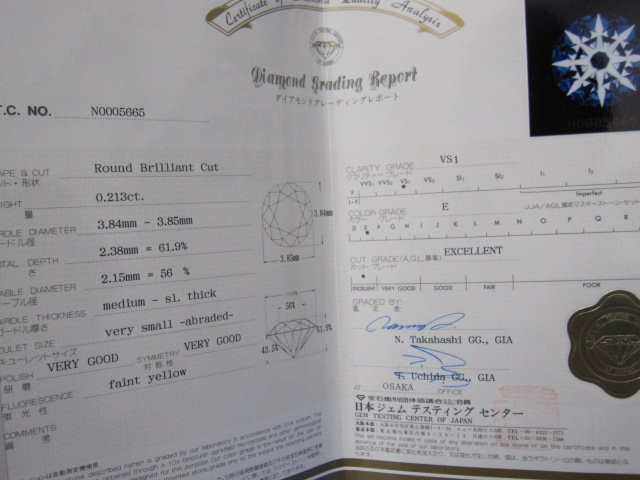 Certificate of Diamond Quality Analysis
Diamond Grading Report
ダイアモンドグレーディングレポート
T.C. NO. N0005665
APE & CUT Round Brilliant Cut
ット・形状
IGHT 0.213ct.
量
RDLE DIAMETER 3.84mm - 3.85mm
ードル径
OTAL DEPTH 2.38mm = 61.9%
さ
ABLE DIAMETER 2.15mm = 56 %
ーブル径
IRDLE THICKNESS medium - sl. thick
ードル厚さ
ULET SIZE very small -abraded-
キューレットサイズ
POLISH VERY GOOD SYMMETRY VERY GOOD
研磨 対称性
FLUORESCENCE faint yellow
蛍光性
COMMENTS
備考
3.84mm
3.85mm
56%
43.5%
61.9%
N0005665
CLARITY GRADE VS1
クラリティー グレード
VVS1 VVS2 VS1 VS2 SI1 SI2 I1 I2
Imperfect
COLOR GRADE E
カラー グレード
JJA/AGL認定マスターストーン・セット
D E F G H I J K L M N O P Q R
CUT GRADE(A.G.L.基準) EXCELLENT
カット グレード
EXCELLENT VERY GOOD GOOD FAIR POOR
GRADED BY
鑑定者
N. Takahashi GG., GIA
T. Uchida GG., GIA
AT OSAKA OFFICE
宝石鑑別団体協議会
日本ジェム テスティング センター
GEM TESTING CENTER OF JAPAN
大阪本社
東京本社